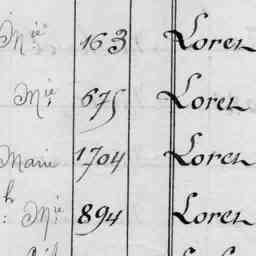 Mie 163 Loren
Mie 675 Loren
Marie 1704 Loren
h: Mie 894 Loren